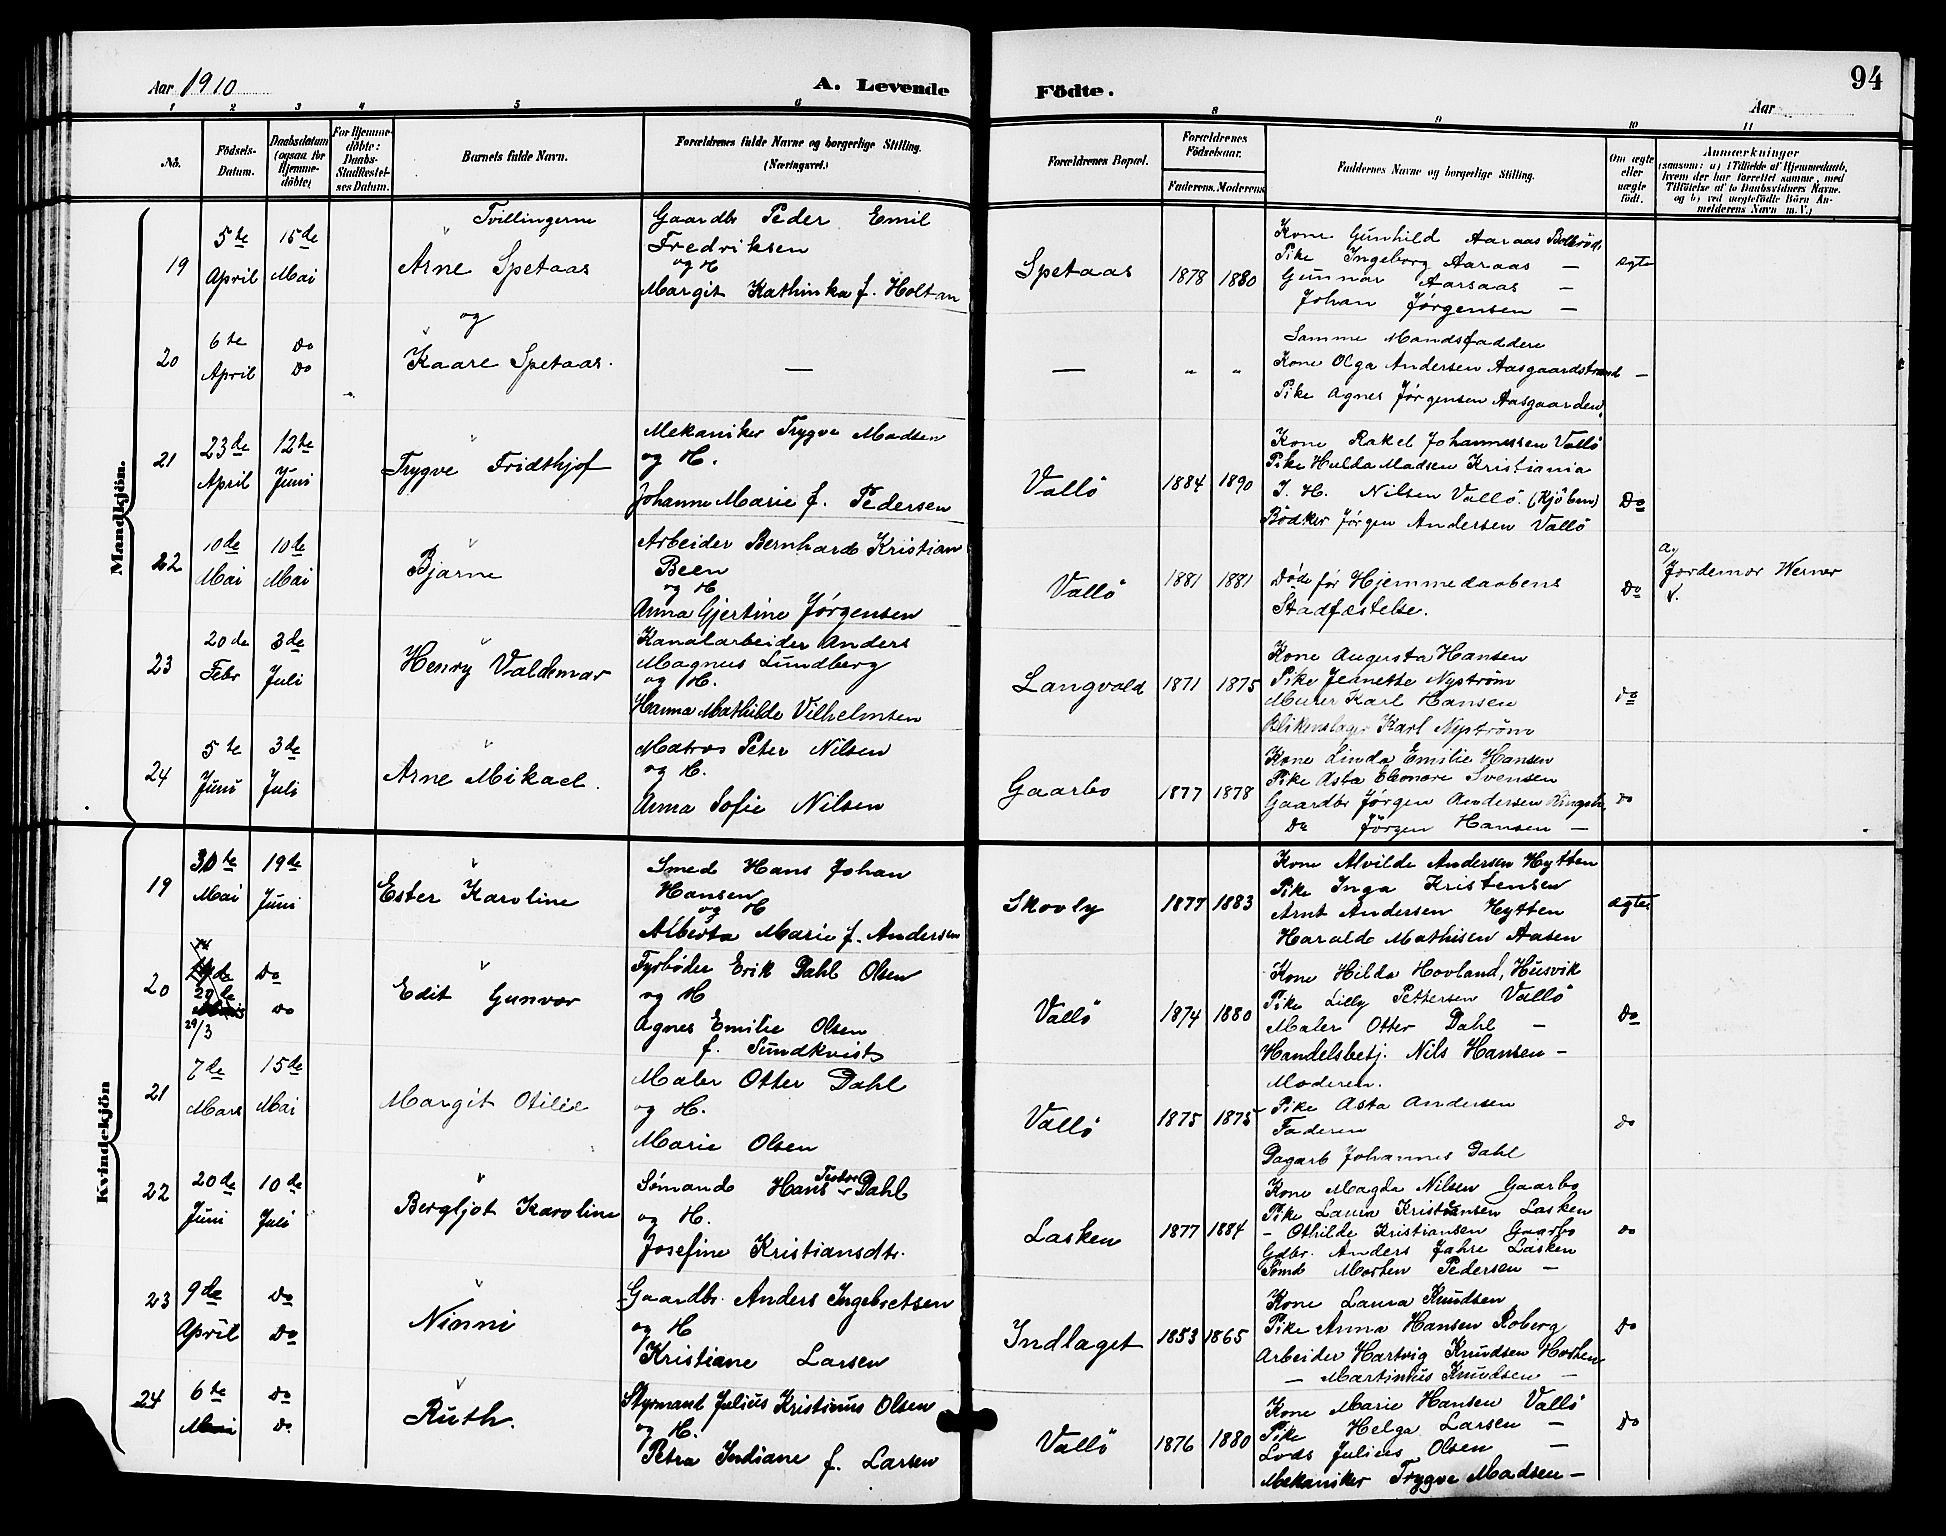 Aar 1910
A. Levende
Födte.
94
Aar
1 2 3 4 5 6 8 9 10 11
No.
Födsels-
Datum.
Daabsdatum
(ogsaa for
Hjemme-
döbte)
For Hjemme-
döbte:
Daabs-
Stadfæstel-
ses Datum.
Barnets fulde Navn.
Forældrenes fulde Navne og borgerlige Stilling.
(Næringsvei.)
Forældrenes Bopæl.
Forældrenes
Födselsaar.
Faderens. Moderens.
Faddernes Navne og borgerlige Stilling.
Om ægte
eller
uægte
födt.
Anmærkninger
(saasom: a) i Tilfælde af Hjemmedaab,
hvem der har forrettet samme, med
Tilföielse af to Daabsvidners Navne,
og b) ved uægtefödte Börn An-
melderens Navn m.V.)
Mandkjön.
19
5te
April
15de
Mai
Tvillingerne
Arne Spetaas
Gaardbr Peder Emil
Fredriksen
og H
Margit Kathinka f. Holtan
Spetaas
1878 1880
Kone Gunhild Aaraas
Pike Ingeborg Aaraas —
Gunnar Aaraas —
Johan Jørgensen —
ægte
og
20
6te
April
Do
Do
Kaare Spetaas.
—
—
" "
Samme Mandsfaddere
Kone Olga Andersen Aasgaardstrand
Pike Agnes Jørgensen Aasgaarden.
—
21
23de
April
12te
Juni
Trygve Fridthjof
Mekaniker Trygve Madsen
og H.
Johanne Marie f. Pedersen
Vallö
1884 1890
Kone Rakel Johannessen Vallö
Pike Hulda Madsen Kristiania
J. H. Nilsen Vallö. (Kjöbm)
Bödker Jørgen Andersen Vallö
Do
22
10de
Mai
10de
Mai
Bjarne
Arbeider Bernhard Kristian
Been
og H
Anna Gjertine Jørgensen
Vallö
1881 1881
Døde før Hjemmedaabens
Stadfæstelse.
Do
a/
Jordemor Werner
V.
23
20de
Febr
3de
Juli
Henry Valdemar
Kanalarbeider Anders
Magnus Lundberg
og H.
Hanna Mathilde Vilhelmsen
Langvold
1871 1875
Kone Augusta Hansen
Pike Jeanette Nyström
Murer Karl Hansen
Blikenslager Karl Nyström
do
24
5te
Juni
3de
Juli
Arne Mikael.
Matros Peter Nilsen
og H.
Anna Sofie Nilsen
Gaarbo
1877 1878
Kone Linda Emilie Hansen
Pike Asta Eleonore Svensen
Gaardbr Jørgen Andersen
Do Jørgen Hansen —
do
Kvindekjön
19
30te
Mai
19de
Juni
Ester Karoline
Smed Hans Johan
Hansen
og H
Alberta Marie f. Andersen
Skovly
1877 1883
Kone Alvilde Andersen Hytten
Pike Inga Kristensen
Arnt Andersen Hytten
Harald Mathisen Aasen
ægte
20
29/3
Do
Do
Edit Gunvor
Fyrbøder Erik Dahl Olsen
og H
Agnes Emilie Olsen
f. Sundkvist
Vallö
1874 1880
Kone Hilda Hovland, Husvik
Pike Lilly Pettersen Vallö
Maler Otter Dahl —
Handelsbetj. Nils Hansen —
Do
21
7de
Mars
15de
Mai
Margit Otilie
Maler Otter Dahl
og H.
Marie Olsen
Vallö
1875 1875
Moderen.
Pike Asta Andersen
Faderen
Dagarb Johannes Dahl
do
22
20de
Juni
10de
Juli
Bergljot Karoline
Sømand Hans Teodor Dahl
og H.
Josefine Kristiansdtr.
Lasken
1877 1884
Kone Magda Nilsen Gaarbo
Pike Laura Kristiansen Lasken
— Othilde Kristiansen Gaarbo
Gdbr. Anders Jahre Lasken
Sømd Morten Pedersen —
do
23
9de
April
Do
Do
Ninni
Gaardbr. Anders Ingebretsen
og H
Kristiane Larsen
Indlaget
1853 1865
Kone Laura Knudsen
Pike Anna Hansen Roberg
Arbeider Hartvig Knudsen
— Martinius Knudsen —
Do
24
6te
Mai
Do
Do
Ruth.
Styrmand Julius Kristinus Olsen
og H.
Petra Indiane f. Larsen
Vallö
1876 1880
Kone Marie Hansen Vallö
Pike Helga Larsen —
Lods Julius Olsen —
Mekaniker Trygve Madsen —
Do